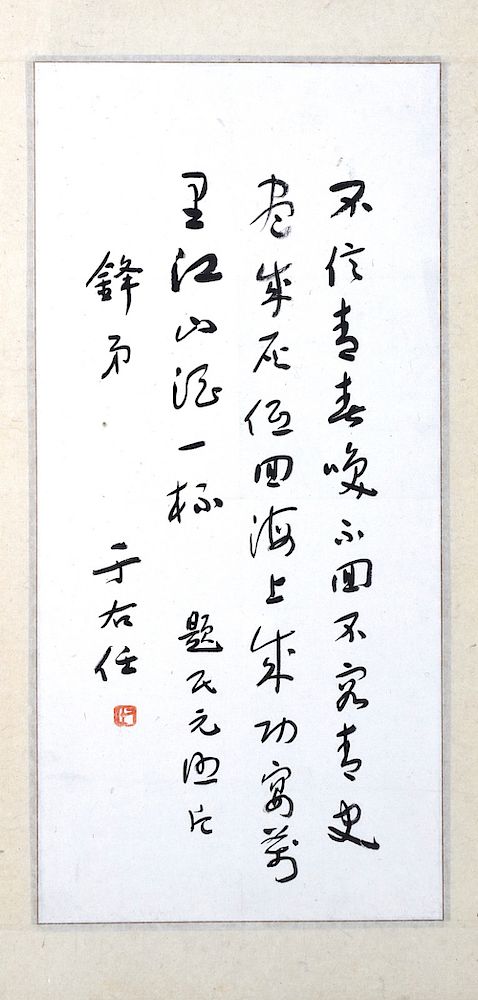 不信青春喚不回不容青史
盡成灰低回海上成功宴萬
里江山酒一杯 題民元照片
鋒弟 于右任